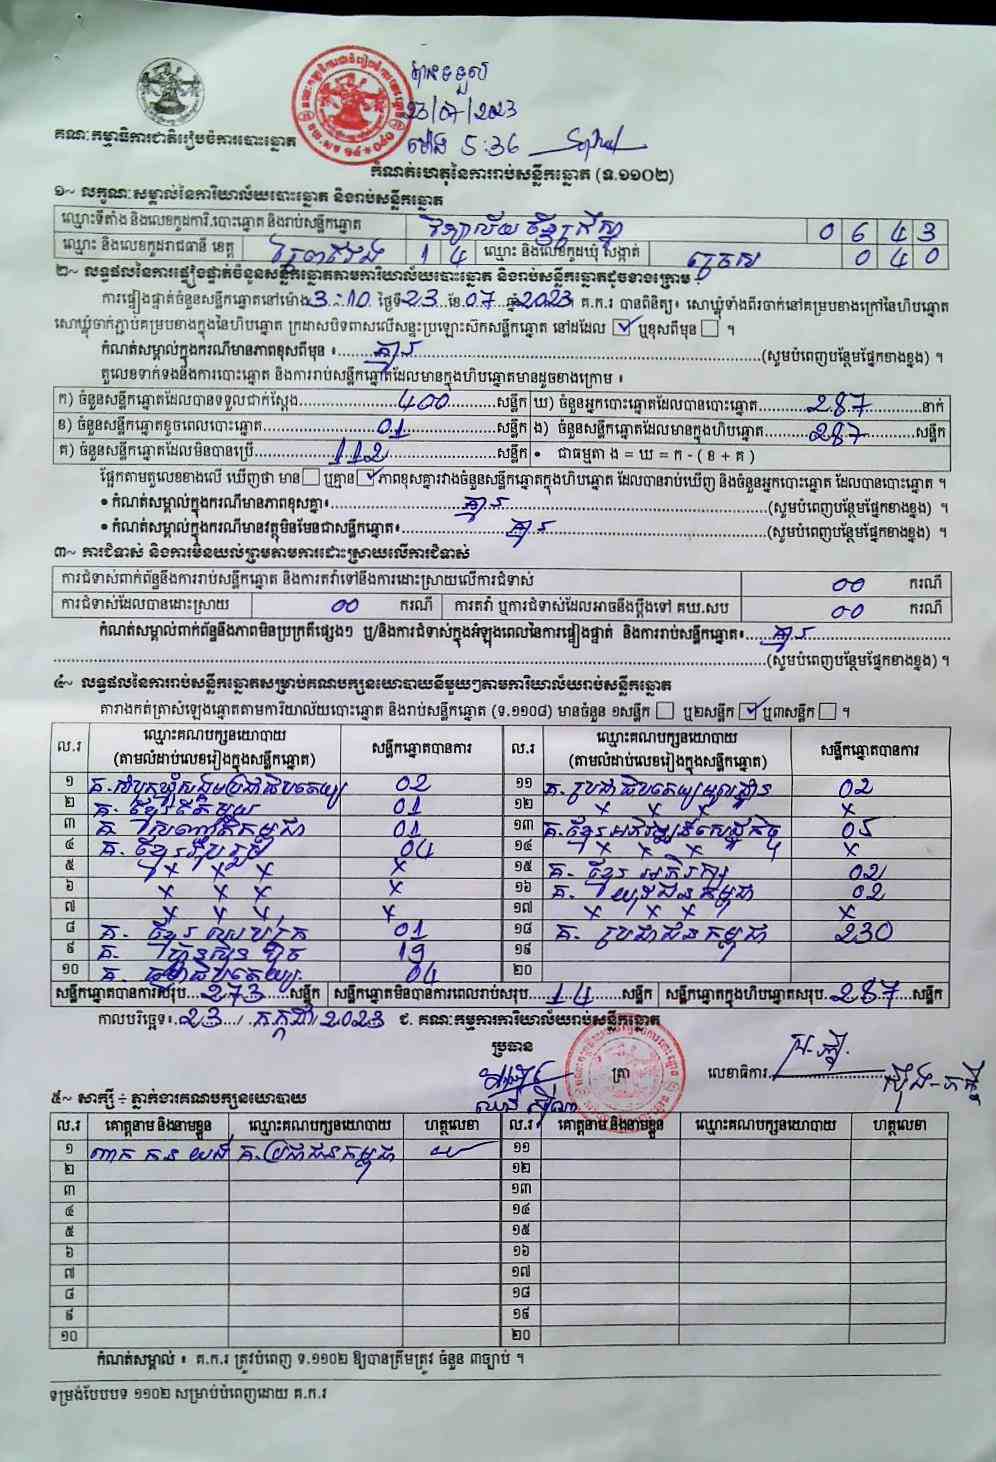 បានទទួល
23/07/2023
ម៉ោង 5:36
គណៈកម្មាធិការជាតិរៀបចំការបោះឆ្នោត
កំណត់ហេតុនៃការរាប់សន្លឹកឆ្នោត (ទ.១១០២)
១~ លក្ខណៈសម្គាល់នៃការិយាល័យបោះឆ្នោត និងរាប់សន្លឹកឆ្នោត
ឈ្មោះទីតាំង និងលេខកូដការិ.បោះឆ្នោត និងរាប់សន្លឹកឆ្នោត វិទ្យាល័យ 0 6 4 3
ឈ្មោះ និងលេខកូដរាជធានី ខេត្ត ព្រៃវែង 1 4 ឈ្មោះ និងលេខកូដឃុំ សង្កាត់ 0 4 0
២~ លទ្ធផលនៃការផ្ទៀងផ្ទាត់ចំនួនសន្លឹកឆ្នោតតាមការិយាល័យបោះឆ្នោត និងរាប់សន្លឹកឆ្នោតដូចខាងក្រោម ៖
ការផ្ទៀងផ្ទាត់ចំនួនសន្លឹកឆ្នោតនៅម៉ោង 3:10 ថ្ងៃទី 23 ខែ 07 ឆ្នាំ 2023 ។ គ.ក.រ បានពិនិត្យ៖ សោឃ្លុំទាំងពីរចាក់នៅគម្របខាងក្រៅនៃហិបឆ្នោត
សោឃ្លុំចាក់ភ្ជាប់គម្របខាងក្នុងនៃហិបឆ្នោត ក្រដាសបិទពាសលើសន្ទះប្រឡោះស៊កសន្លឹកឆ្នោត នៅដដែល ☑ ឬខុសពីមុន ☐ ។
កំណត់សម្គាល់ក្នុងករណីមានភាពខុសពីមុន ៖ គ្មាន (សូមបំពេញបន្ថែមផ្នែកខាងខ្នង) ។
តួលេខទាក់ទងនឹងការបោះឆ្នោត និងការរាប់សន្លឹកឆ្នោតដែលមានក្នុងហិបឆ្នោតមានដូចខាងក្រោម ៖
ក) ចំនួនសន្លឹកឆ្នោតដែលបានទទួលជាក់ស្តែង 400 សន្លឹក ឃ) ចំនួនអ្នកបោះឆ្នោតដែលបានបោះឆ្នោត 287 នាក់
ខ) ចំនួនសន្លឹកឆ្នោតខូចពេលបោះឆ្នោត 01 សន្លឹក ង) ចំនួនសន្លឹកឆ្នោតដែលមានក្នុងហិបឆ្នោត 287 សន្លឹក
គ) ចំនួនសន្លឹកឆ្នោតដែលមិនបានប្រើ 112 សន្លឹក • ជាធម្មតា ង = ឃ = ក - ( ខ + គ )
ផ្អែកតាមតួលេខខាងលើ ឃើញថា មាន ☐ ឬគ្មាន ☑ ភាពខុសគ្នារវាងចំនួនសន្លឹកឆ្នោតក្នុងហិបឆ្នោត ដែលបានរាប់ឃើញ និងចំនួនអ្នកបោះឆ្នោត ដែលបានបោះឆ្នោត ។
• កំណត់សម្គាល់ក្នុងករណីមានភាពខុសគ្នា៖ គ្មាន (សូមបំពេញបន្ថែមផ្នែកខាងខ្នង) ។
• កំណត់សម្គាល់ក្នុងករណីមានវត្ថុមិនមែនជាសន្លឹកឆ្នោត៖ គ្មាន (សូមបំពេញបន្ថែមផ្នែកខាងខ្នង) ។
៣~ ការជំទាស់ និងការមិនយល់ព្រមតាមការដោះស្រាយលើការជំទាស់
ការជំទាស់ពាក់ព័ន្ធនឹងការរាប់សន្លឹកឆ្នោត និងការតវ៉ាទៅនឹងការដោះស្រាយលើការជំទាស់ 00 ករណី
ការជំទាស់ដែលបានដោះស្រាយ 00 ករណី ការតវ៉ា ឬការជំទាស់ដែលអាចនឹងប្តឹងទៅ គឃ.សប 00 ករណី
កំណត់សម្គាល់ពាក់ព័ន្ធនឹងភាពមិនប្រក្រតីផ្សេងៗ ឬ/និងការជំទាស់ក្នុងអំឡុងពេលនៃការផ្ទៀងផ្ទាត់ និងការរាប់សន្លឹកឆ្នោត៖ គ្មាន
(សូមបំពេញបន្ថែមផ្នែកខាងខ្នង) ។
៤~ លទ្ធផលនៃការរាប់សន្លឹកឆ្នោតសម្រាប់គណបក្សនយោបាយនីមួយៗតាមការិយាល័យរាប់សន្លឹកឆ្នោត
តារាងកត់ត្រាសំឡេងឆ្នោតតាមការិយាល័យបោះឆ្នោត និងរាប់សន្លឹកឆ្នោត (ទ.១១០៨) មានចំនួន ១សន្លឹក ☐ ឬ២សន្លឹក ☑ ឬ៣សន្លឹក ☐ ។
ល.រ ឈ្មោះគណបក្សនយោបាយ (តាមលំដាប់លេខរៀងក្នុងសន្លឹកឆ្នោត) សន្លឹកឆ្នោតបានការ ល.រ ឈ្មោះគណបក្សនយោបាយ (តាមលំដាប់លេខរៀងក្នុងសន្លឹកឆ្នោត) សន្លឹកឆ្នោតបានការ
១ គ.សំបុកឃ្មុំសង្គមប្រជាធិបតេយ្យ 02 ១១ គ.ប្រជាធិបតេយ្យមូលដ្ឋាន 02
២ គ. ខ្មែរតែមួយ 01 ១២ x x x
៣ គ. ស្រលាញ់ជាតិកម្ពុជា 01 ១៣ គ.ខ្មែរអភិវឌ្ឍន៍សេដ្ឋកិច្ច 05
៤ គ. ខ្មែររួបរួម 04 ១៤ x x x x
៥ x x x x ១៥ គ. ខ្មែរអភិរក្ស 02
៦ x x x x ១៦ គ. យុវជនកម្ពុជា 02
៧ x x x x ១៧ x x x x
៨ គ. ខ្មែរ 01 ១៨ គ. ប្រជាជនកម្ពុជា 230
៩ គ. ហ៊្វុនស៊ិនប៉ិច 19 ១៩
១០ គ. ធម្មាធិបតេយ្យ 04 ២០
សន្លឹកឆ្នោតបានការសរុប 273 សន្លឹក សន្លឹកឆ្នោតមិនបានការពេលរាប់សរុប 14 សន្លឹក សន្លឹកឆ្នោតក្នុងហិបឆ្នោតសរុប 287 សន្លឹក
កាលបរិច្ឆេទ៖ 23 / កក្កដា / 2023 ជ. គណៈកម្មការការិយាល័យរាប់សន្លឹកឆ្នោត
ប្រធាន
ត្រា លេខាធិការ
៥~ សាក្សី ÷ ភ្នាក់ងារគណបក្សនយោបាយ
ល.រ គោត្តនាម និងនាមខ្លួន ឈ្មោះគណបក្សនយោបាយ ហត្ថលេខា ល.រ គោត្តនាម និងនាមខ្លួន ឈ្មោះគណបក្សនយោបាយ ហត្ថលេខា
១ គ.ប្រជាជនកម្ពុជា ១១
២ ១២
៣ ១៣
៤ ១៤
៥ ១៥
៦ ១៦
៧ ១៧
៨ ១៨
៩ ១៩
១០ ២០
កំណត់សម្គាល់ ៖ គ.ក.រ ត្រូវបំពេញ ទ.១១០២ ឱ្យបានត្រឹមត្រូវ ចំនួន ៣ច្បាប់ ។
ទម្រង់បែបបទ ១១០២ សម្រាប់បំពេញដោយ គ.ក.រ